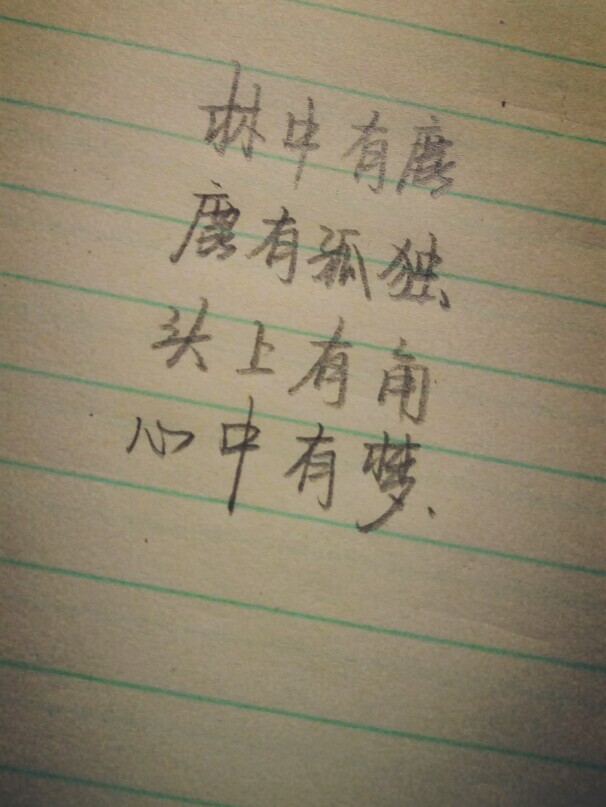 林中有鹿
鹿有孤独
头上有角
心中有梦.